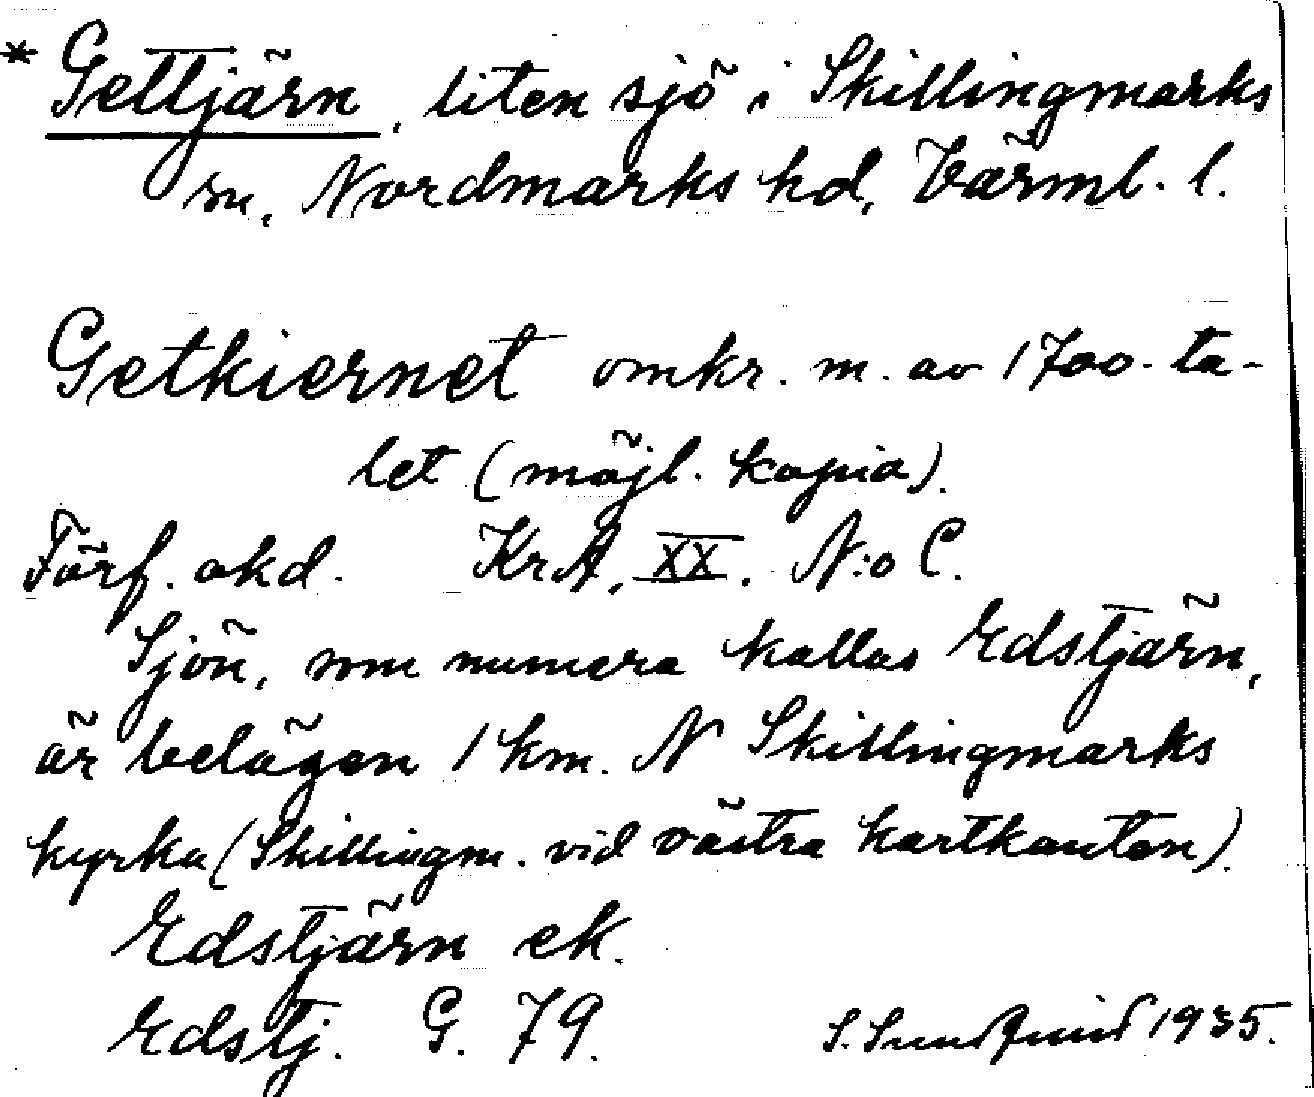 * Gettjärn, liten sjö i Skillingmarks
sn, Nordmarks hd, Värml. l.
Getkiernet omkr. m. av 1700-ta-
let (möjl. kopia).
Förf. okd. KrA, XX. N:o C.
Sjön, som numera kallas Edstjärn,
är belägen 1 km. N Skillingmarks
kyrka (Skillingm. vid västra kartkanten).
Edstjärn ek.
Edstj. G. 79.
S. Sundquist 1935.